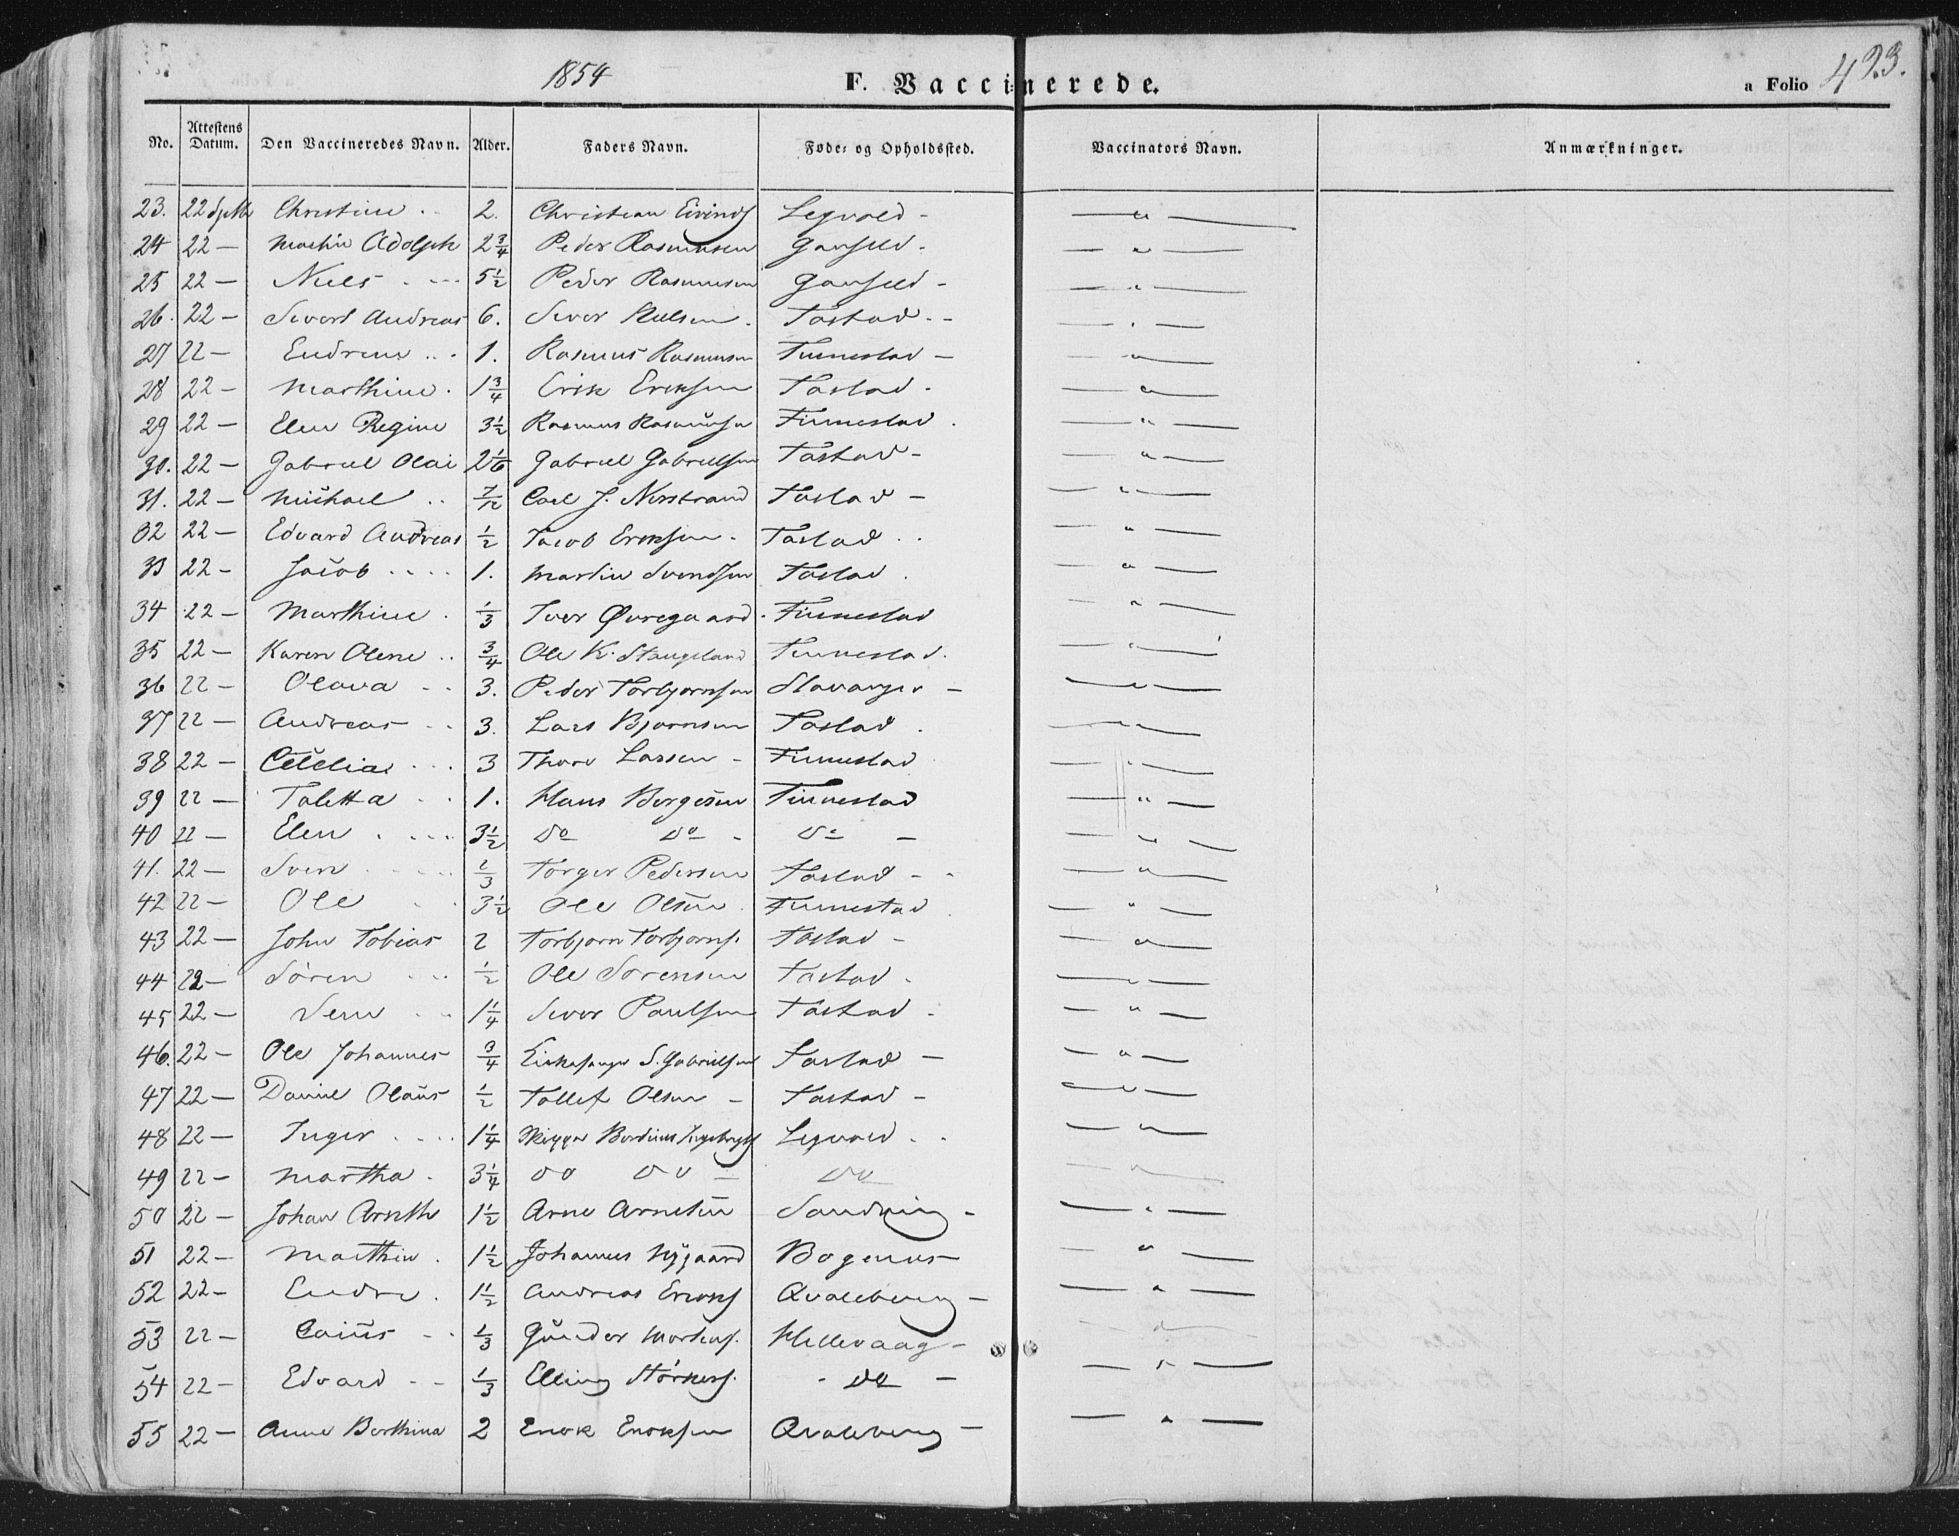 1854 F. Vaccinerede. a Folio 423.
No. Attestens Datum. Den Vaccineredes Navn. Alder. Faders Navn. Føde- og Opholdssted. Vaccinators Navn. Anmærkninger.
23. 22 Septb Christine 2. Christian Eivinds Legvold - — " —
24 22 — Martin Adolph 2 3/4 Peder Rasmussen Gausel - — " —
25 22 — Niels 5 1/2 Peder Rasmussen Gausel - — " —
26. 22 — Sivert Andreas 6. Siver Nielsen Tastad - — " —
27 22 — Endrine 1. Rasmus Rasmussen Finnestad — — " —
28 22 — Marthine 1 3/4 Erik Eriksen Tastad - — " —
29 22 — Elen Regine 3 1/2 Rasmus Rasmusen Finnestad — " —
30. 22 — Gabriel Olai 2 1/6 Gabriel Gabrielsen Tastad - — " —
31. 22 — Michael 7/12 Carl J. Norstrand Tastad — — " —
32 22 — Edvard Andreas 1/2 Jacob Eriksen Tastad — " —
33 22 — Jacob 1. Martin Svendsen Tastad — " —
34 22 — Marthine 1/3 Iver Øvregaard Finnestad — " —
35 22 — Karen Olene 3/4 Ole K. Stangeland Finnestad. — " —
36 22 — Olava 3. Peder Torbjørnsen Stavanger — — " —
37 22 — Andreas 3. Lars Bjørnsen Tastad — " —
38 22 — Cecelia 3 Thore Larsen Finnestad — " —
39 22 — Taletta 1. Hans Børgesen Finnestad — " —
40 22 — Elen 3 1/2 do do do — — " —
41. 22 — Sven 1/3 Torger Pedersen Tastad - — " —
42 22 — Ole 3 1/2 Ole Olsen Finnestad — " —
43 22 — John Tobias 2 Torbjørn Torbjørns. Tastad - — " —
44 22 — Søren 1/2 Ole Sørensen Tastad - — " —
45 22 — 1 1/4 Siver Paulsen Tastad - — " —
46. 22 — Ole Johannes 3/4 Kirkesanger S. Gabrielsen Tastad — — " —
47 22 — Daniel Olaus 1/2 Tollef Olsen Tastad — — " —
48 22 — Inger 1 1/4 Skipper Ingebrigts Legvold — " —
49 22 — Martha 3 1/4 do do do — " —
50 22 — Johan Arnth 1 1/2 Arne Arnesen — " —
51 22 — Marthin 1 1/2 Johannes Nygaard — " —
52 22 — Endre 1 1/2 Andreas Eriks Qvaleberg — — " —
53 22 — Caius 1/3 Gunder Mortens. Hillevaag — — " —
54 22 — Edvard 1/3 Elling do — — " —
55 22 — Anne Berthina 2 Enok Enoksen Qvaleberg — — " —